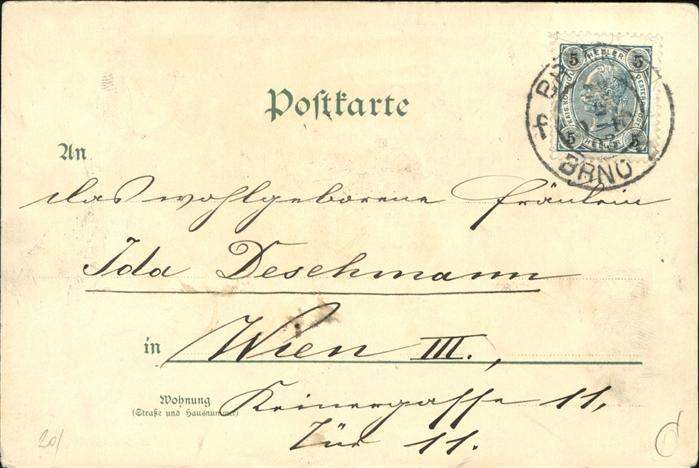 Postkarte
5 HELLER 5
5 HELLER 5
BRNO
An
das wohlgeborene Fräulein
Ida Deschmann
in Wien III.,
Wohnung
(Straße und Hausnummer)
Keinergasse 11,
Tür 11.
20/